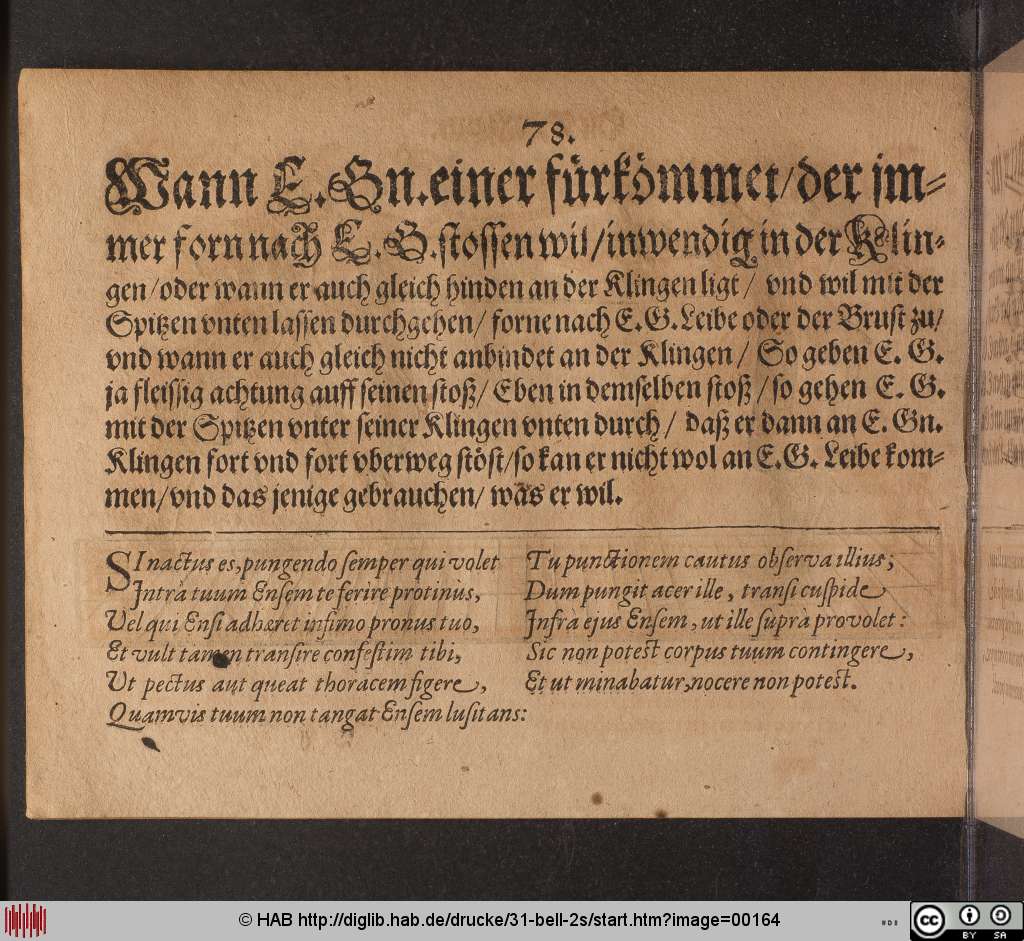 78.
Wann E. Gn. einer fürkömmet/ der jm-
mer forn nach E. G. stossen wil/ inwendig in der Klin-
gen/ oder wann er auch gleich hinden an der Klingen ligt/ vnd wil mit der
Spitzen vnten lassen durchgehen/ forne nach E. G. Leibe oder der Brust zu/
vnd wann er auch gleich nicht anbindet an der Klingen/ So geben E. G.
ja fleissig achtung auff seinen stoß/ Eben in demselben stoß/ so gehen E. G.
mit der Spitzen vnter seiner Klingen vnten durch/ daß er dann an E. Gn.
Klingen fort vnd fort vberweg stöst/ so kan er nicht wol an E. G. Leibe kom-
men/ vnd das jenige gebrauchen/ was er wil.
SI nactus es, pungendo semper qui volet
Intrà tuum Ensem te ferire protinùs,
Vel qui Ensi adhæret infimo pronus tuo,
Et vult tamen transire confestim tibi,
Ut pectus aut queat thoracem figere,
Quamvis tuum non tangat Ensem lusitans:
Tu punctionem cautus observa illius;
Dum pungit acer ille, transi cuspide
Infrà ejus Ensem, ut ille suprà provolet:
Sic non potest corpus tuum contingere,
Et ut minabatur, nocere non potest.
© HAB http://diglib.hab.de/drucke/31-bell-2s/start.htm?image=00164
cc BY SA